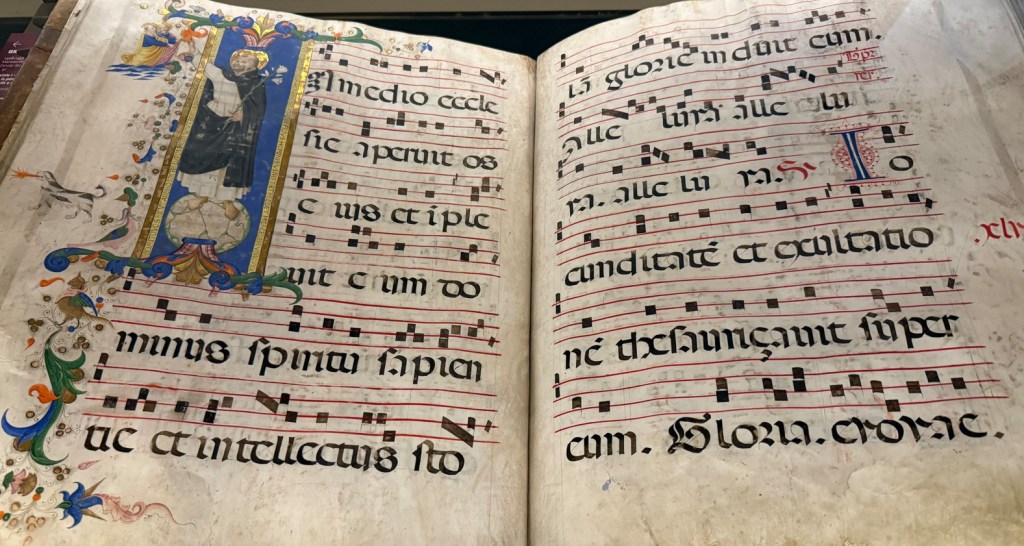 IN medio eccle
sie aperuit os
eius et iple
uit eum do
minus spiritu sapien
tie et intellectus sto
la glorie induit eum.
Alle luya alle lu
ya. alle lu ya. Ps. Io
cunditatē et exultatio
nē thesauriçauit super
eum. Gloria. euouae.